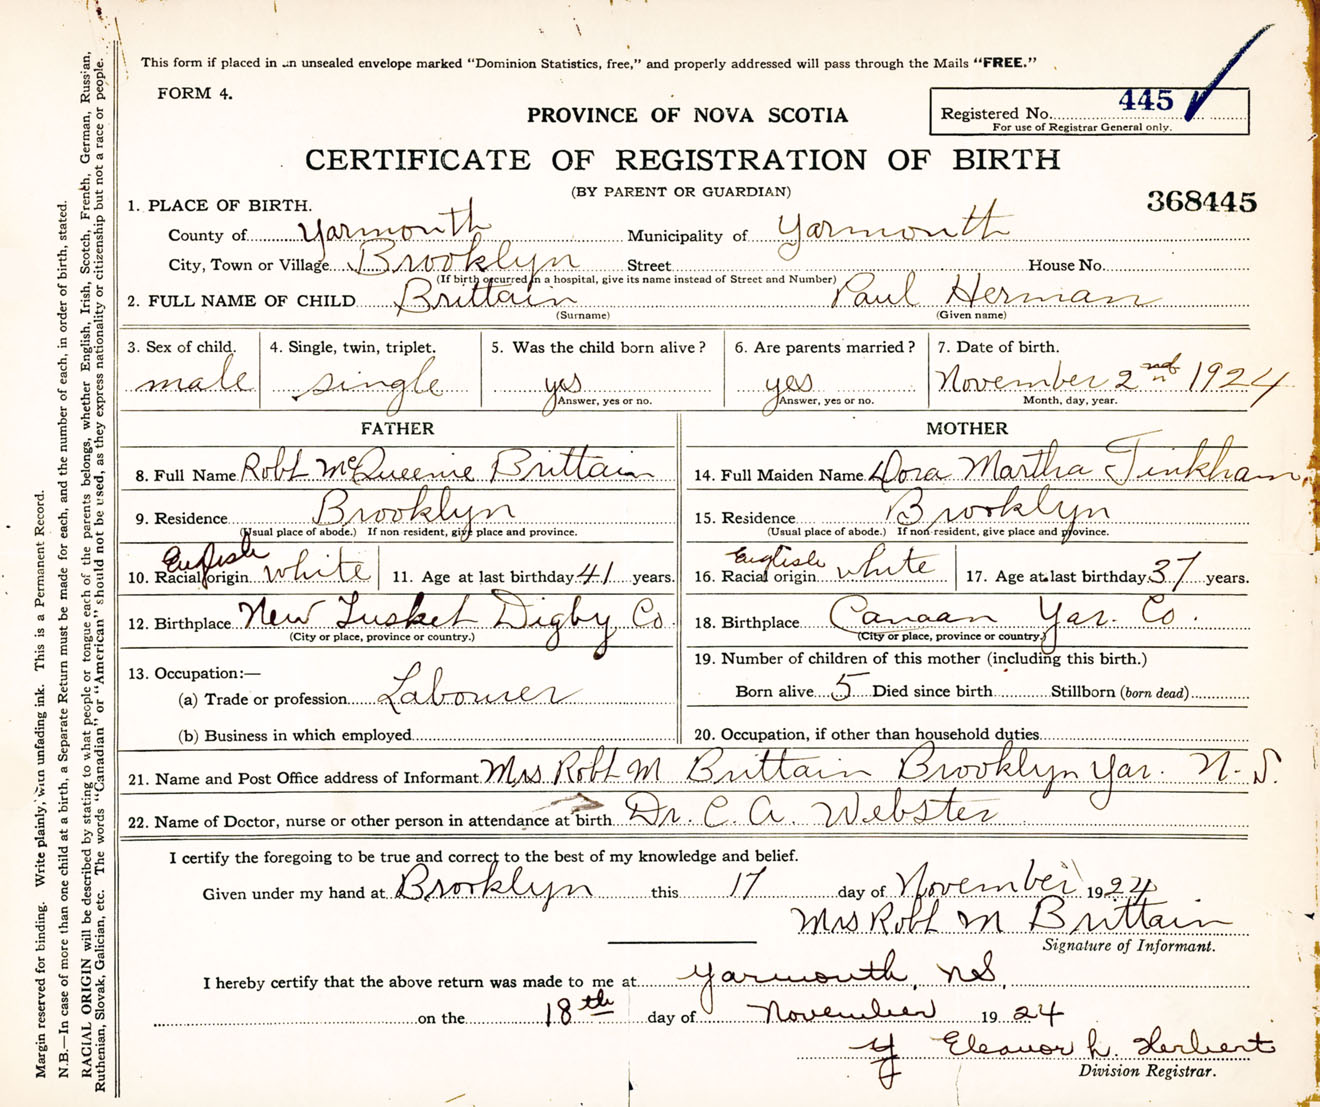 This form if placed in an unsealed envelope marked "Dominion Statistics, free," and properly addressed will pass through the Mails "FREE."
FORM 4.
PROVINCE OF NOVA SCOTIA
Registered No. 445
For use of Registrar General only.
CERTIFICATE OF REGISTRATION OF BIRTH
(BY PARENT OR GUARDIAN)
368445
1. PLACE OF BIRTH.
County of Yarmouth Municipality of Yarmouth
City, Town or Village Brooklyn Street House No.
(If birth occurred in a hospital, give its name instead of Street and Number)
2. FULL NAME OF CHILD Brittain Paul Herman
(Surname) (Given name)
3. Sex of child. 4. Single, twin, triplet. 5. Was the child born alive? 6. Are parents married? 7. Date of birth.
male single yes yes November 2nd 1924
Answer, yes or no. Answer, yes or no. Month, day, year.
FATHER MOTHER
8. Full Name Robt McQueenie Brittain 14. Full Maiden Name Dora Martha Tinkham
9. Residence Brooklyn 15. Residence Brooklyn
(Usual place of abode.) If non resident, give place and province. (Usual place of abode.) If non-resident, give place and province.
English English
10. Racial origin white 11. Age at last birthday 41 years. 16. Racial origin white 17. Age at last birthday 37 years.
12. Birthplace New Tusket Digby Co. 18. Birthplace Canaan Yar. Co.
(City or place, province or country.) (City or place, province or country.)
13. Occupation:— 19. Number of children of this mother (including this birth.)
(a) Trade or profession Labourer Born alive 5 Died since birth Stillborn (born dead)
(b) Business in which employed 20. Occupation, if other than household duties
21. Name and Post Office address of Informant Mrs Robt M Brittain Brooklyn Yar. N.S.
22. Name of Doctor, nurse or other person in attendance at birth Dr. C. A. Webster
I certify the foregoing to be true and correct to the best of my knowledge and belief.
Given under my hand at Brooklyn this 17 day of November 1924
Mrs Robt M Brittain
Signature of Informant.
I hereby certify that the above return was made to me at Yarmouth, NS,
on the 18th day of November 1924
Eleanor L. Herbert
Division Registrar.
Margin reserved for binding. Write plainly, with unfading ink. This is a Permanent Record.
N.B.—In case of more than one child at a birth, a Separate Return must be made for each, and the number of each, in order of birth, stated.
RACIAL ORIGIN will be described by stating to what people or tongue each of the parents belongs, whether English, Irish, Scotch, French, German, Russian,
Ruthenian, Slovak, Galician, etc. The words "Canadian" or "American" should not be used, as they express nationality or citizenship but not a race or people.